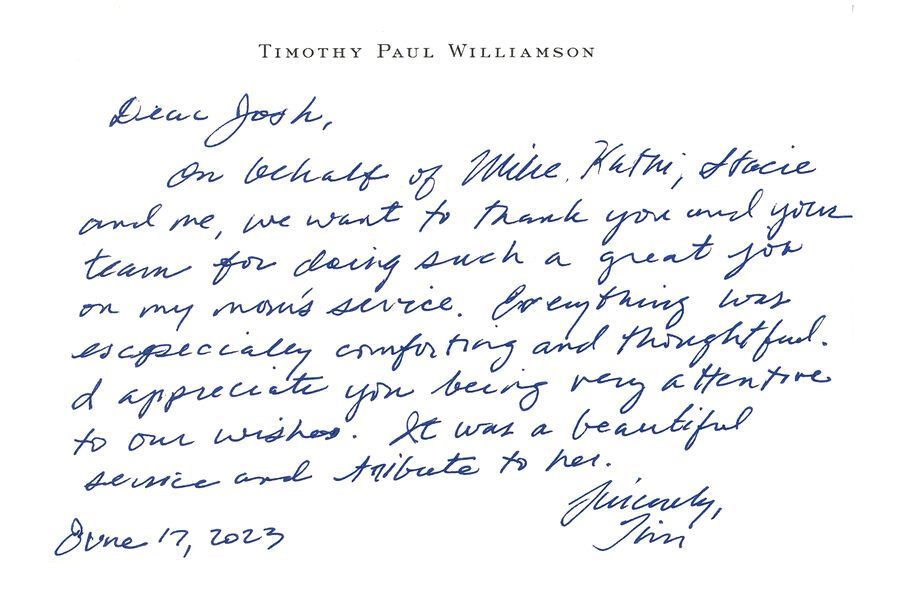 TIMOTHY PAUL WILLIAMSON
Dear Josh,
On behalf of Mike, Kathi, Stacie
and me, we want to thank you and your
team for doing such a great job
on my mom's service. Everything was
especially comforting and thoughtful.
I appreciate you being very attentive
to our wishes. It was a beautiful
service and tribute to her.
Sincerely,
Tim
June 17, 2023